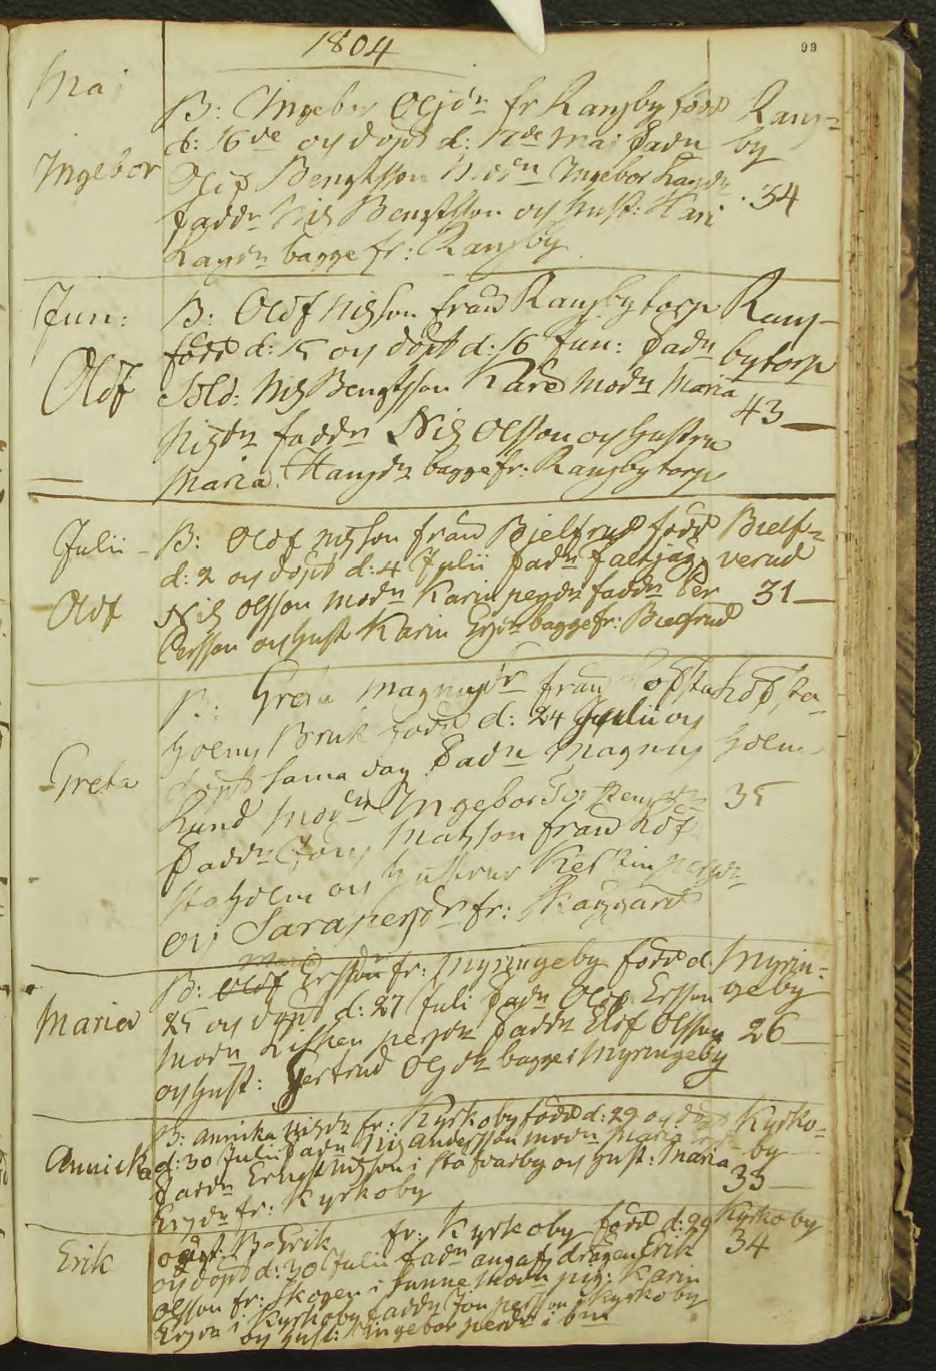 1804
99
Maj
Ingebor
B: Ingebor Olsdr fr Ransby född
d: 16de och döpt d: 17de Maj Fadn
Olof Bengtsson Modn Ingebor Larsdr
Faddr Nils Bengtsson och hust: Kari
Larsdr bagge fr: Ransby
Rans=
by
34
Jun:
Olof
B: Olof Nilsson från Ransbytorp
född d: 15 och döpt d: 16 Jun: Fadn
Sold: Nils Bengtsson Kare Modn Maria
Nilsdr Faddr Nils Olsson och hustru
Maria Hansdr bagge fr: Ransbytorp
Rans-
bytorp
43
Julii
Olof
B: Olof Nilsson från Bjelfrud född
d: 2 och döpt d: 4 Julii Fadn
Nils Olsson Modn Karin Persdr Faddr Per
Persson och hust Karin bagge fr: Bielfrud
Bielf=
verud
31
Greta
B: Greta Magnusdr från Löfsta
holms Bruk född d: 24 Julii och
döpt samma dag Fadn Magnus
Lund Modn Ingebor
Faddr Jöns Matsson från Löf
staholm och hustrur Kerstin Persdr
och Sara Persdr fr:
Löfsta-
holm
35
Maria
Maria
B: Olof Ersdr fr: Myringeby född d:
25 och döpt d: 27 Juli Fadn Olof Ersson
Modn Lisken Persdr Faddr Elof Olsson
och hust: Gertrud Olsdr bagge i Myringeby
Myrin=
geby
26
Annicka
B: Annika Nilsdr fr: Kyrkoby född d: 29 och döpt
d: 30 Julii Fadn Nils Andersson Modn Maria
Faddr Ernst Nilsson i Stafvarby och hust: Maria
Ersdr fr: Kyrkoby
Kyrko=
by
33
Erik
oägt: B: Erik fr: Kyrkoby född d: 29
och döpt d: 30 Julii Fadn angafs dragon Erik
Olsson fr: Skogen i Sunne Modn pig: Karin
Ersdr i Kyrkoby Faddr Jon Persson i Kyrkoby
och hust: Ingebor Persdr i
Kyrkoby
34